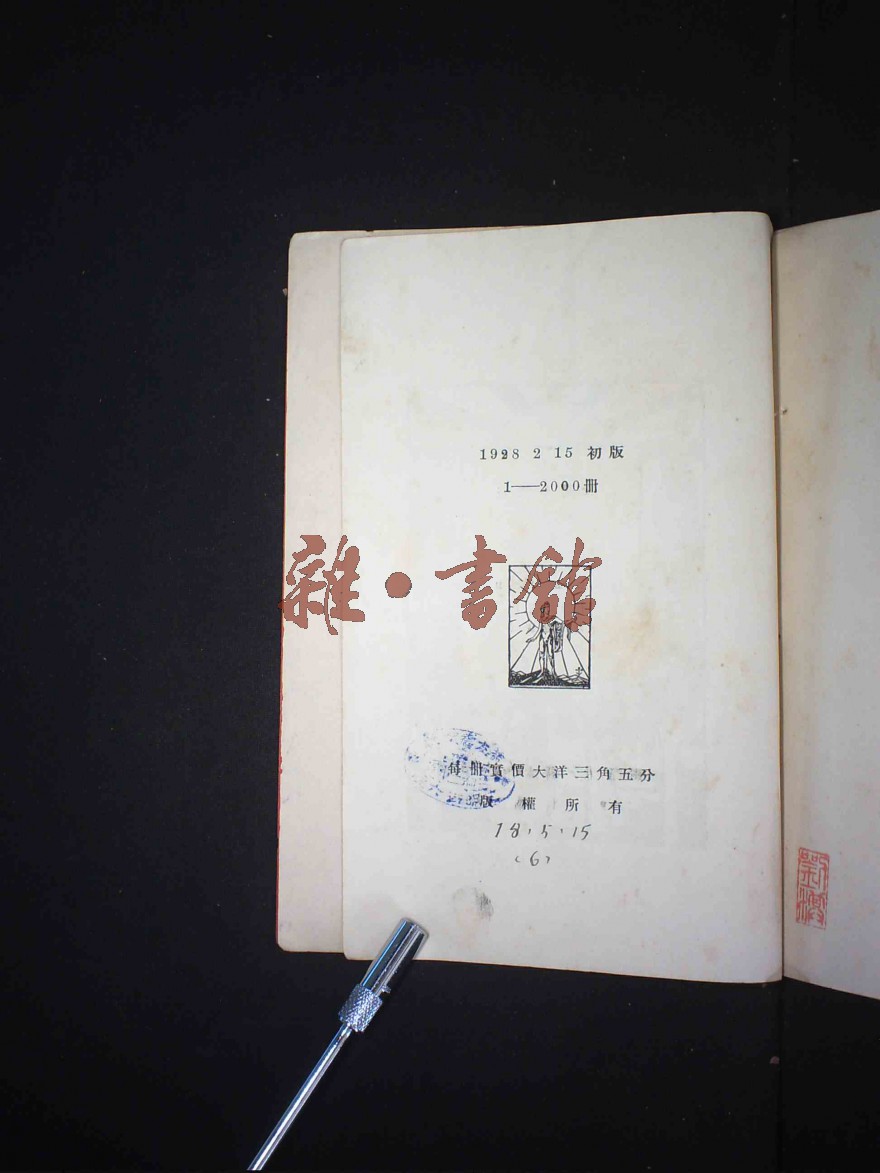 1928 2 15 初版
1——2000冊
雜·書館
每冊實價大洋三角五分
版權所有
18.5.15
(6)